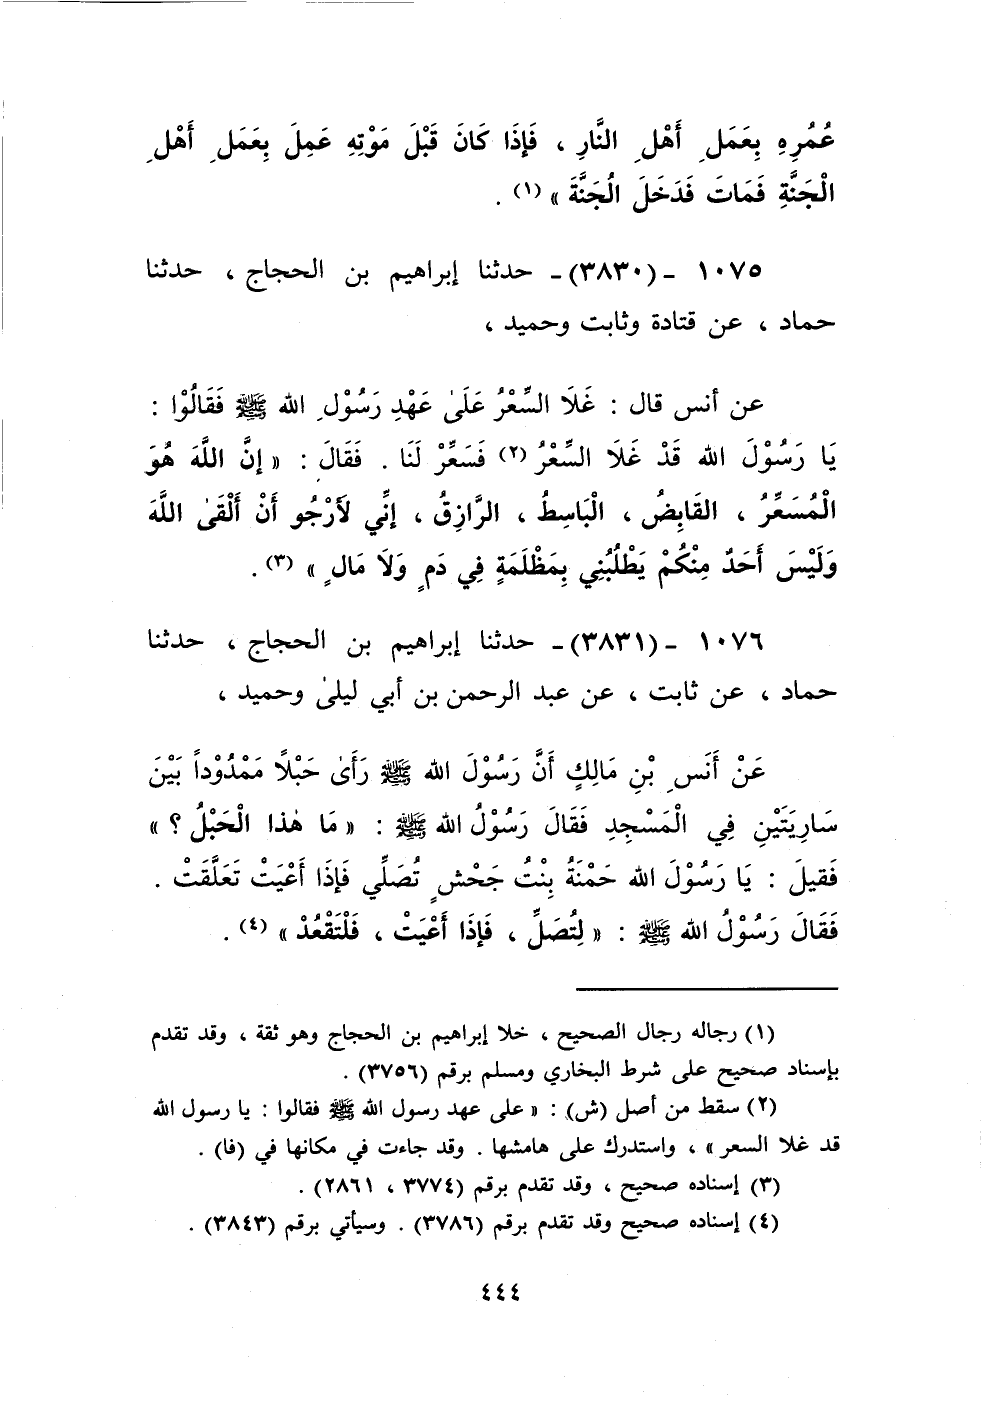 عُمُرِهِ بِعَمَلِ أَهْلِ النَّارِ ، فَإِذَا كَانَ قَبْلَ مَوْتِهِ عَمِلَ بِعَمَلِ أَهْلِ
الْجَنَّةِ فَمَاتَ فَدَخَلَ الْجَنَّةَ » (١) .
١٠٧٥ - (٣٨٣٠) - حدثنا إبراهيم بن الحجاج ، حدثنا
حماد ، عن قتادة وثابت وحميد ،
عن أنس قال : غَلَا السِّعْرُ عَلَىٰ عَهْدِ رَسُوْلِ الله ﷺ فَقَالُوْا :
يَا رَسُوْلَ الله قَدْ غَلَا السِّعْرُ (٢) فَسَعِّرْ لَنَا . فَقَالَ : « إِنَّ اللَّهَ هُوَ
الْمُسَعِّرُ ، القَابِضُ ، الْبَاسِطُ ، الرَّازِقُ ، إِنِّي لَأَرْجُو أَنْ أَلْقَىٰ اللَّهَ
وَلَيْسَ أَحَدٌ مِنْكُمْ يَطْلُبُنِي بِمَظْلَمَةٍ فِي دَمٍ وَلَا مَالٍ » (٣) .
١٠٧٦ - (٣٨٣١) - حدثنا إبراهيم بن الحجاج ، حدثنا
حماد ، عن ثابت ، عن عبد الرحمن بن أبي ليلىٰ وحميد ،
عَنْ أَنَسِ بْنِ مَالِكٍ أَنَّ رَسُوْلَ الله ﷺ رَأَىٰ حَبْلاً مَمْدُوْداً بَيْنَ
سَارِيَتَيْنِ فِي الْمَسْجِدِ فَقَالَ رَسُوْلُ الله ﷺ : « مَا هٰذا الْحَبْلُ ؟ »
فَقِيلَ : يَا رَسُوْلَ الله حَمْنَةُ بِنْتُ جَحْشٍ تُصَلِّي فَإِذَا أَعْيَتْ تَعَلَّقَتْ .
فَقَالَ رَسُوْلُ الله ﷺ : « لِتُصَلِّ ، فَإِذَا أَعْيَتْ ، فَلْتَقْعُدْ » (٤) .
(١) رجاله رجال الصحيح ، خلا إبراهيم بن الحجاج وهو ثقة ، وقد تقدم
بإسناد صحيح على شرط البخاري ومسلم برقم (٣٧٥٦) .
(٢) سقط من أصل (ش) : « على عهد رسول الله ﷺ فقالوا : يا رسول الله
قد غلا السعر » ، واستدرك على هامشها . وقد جاءت في مكانها في (فا) .
(٣) إسناده صحيح ، وقد تقدم برقم (٣٧٧٤ ، ٢٨٦١) .
(٤) إسناده صحيح وقد تقدم برقم (٣٧٨٦) . وسيأتي برقم (٣٨٤٣) .
٤٤٤